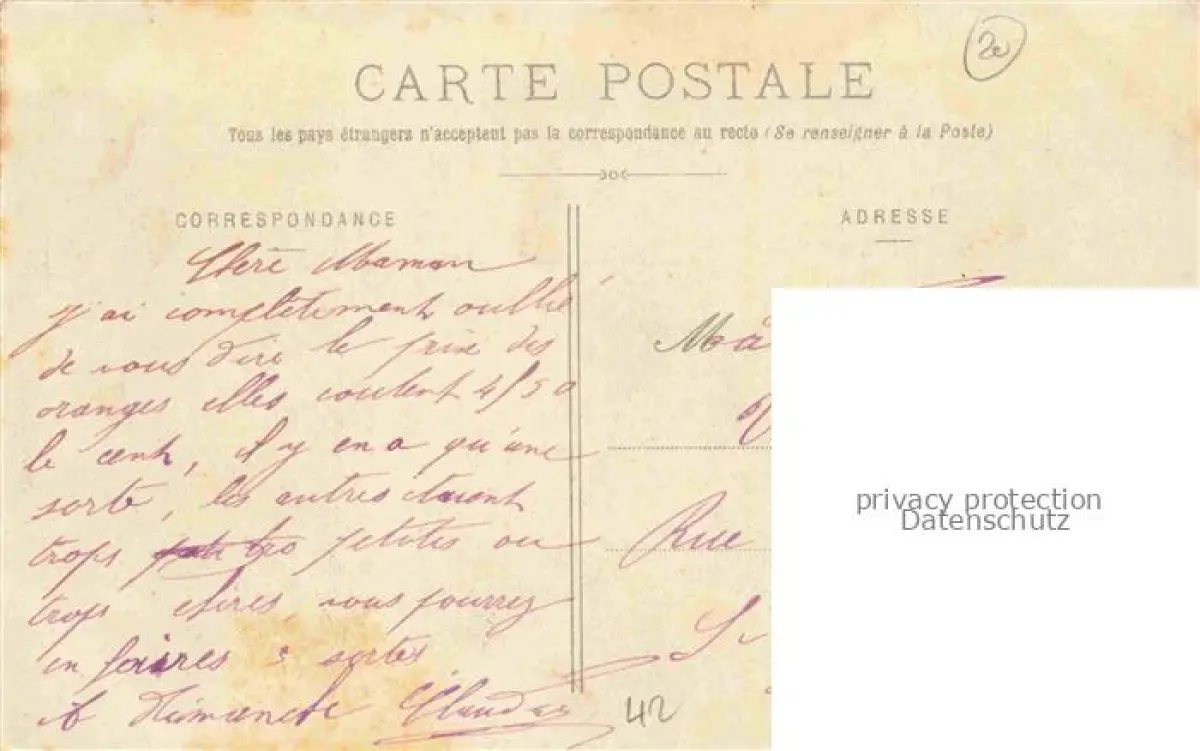 2e
CARTE POSTALE
Tous les pays étrangers n'acceptent pas la correspondance au recto (Se renseigner à la Poste)
CORRESPONDANCE
Chère Maman
j'ai complètement oublié
de vous dire le prix des
oranges elles coutent 4f50
le cent, il y en a qu'une
sorte, les autres étaient
trops petites ou
trop chères vous pourrez
en faires 3 sortes
A Dimanche
ADRESSE
Rue
42
privacy protection
Datenschutz